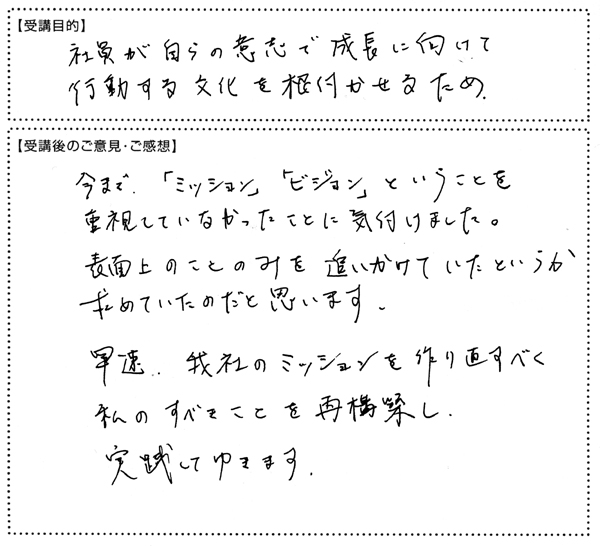 【受講目的】
社員が自らの意志で成長に向けて
行動する文化を根付かせるため。
【受講後のご意見・ご感想】
今まで、「ミッション」「ビジョン」ということを
重視していなかったことに気付けました。
表面上のことのみを追いかけていたというか
求めていたのだと思います。
早速、我社のミッションを作り直すべく
私のすべきことを再構築し、
実践してゆきます。